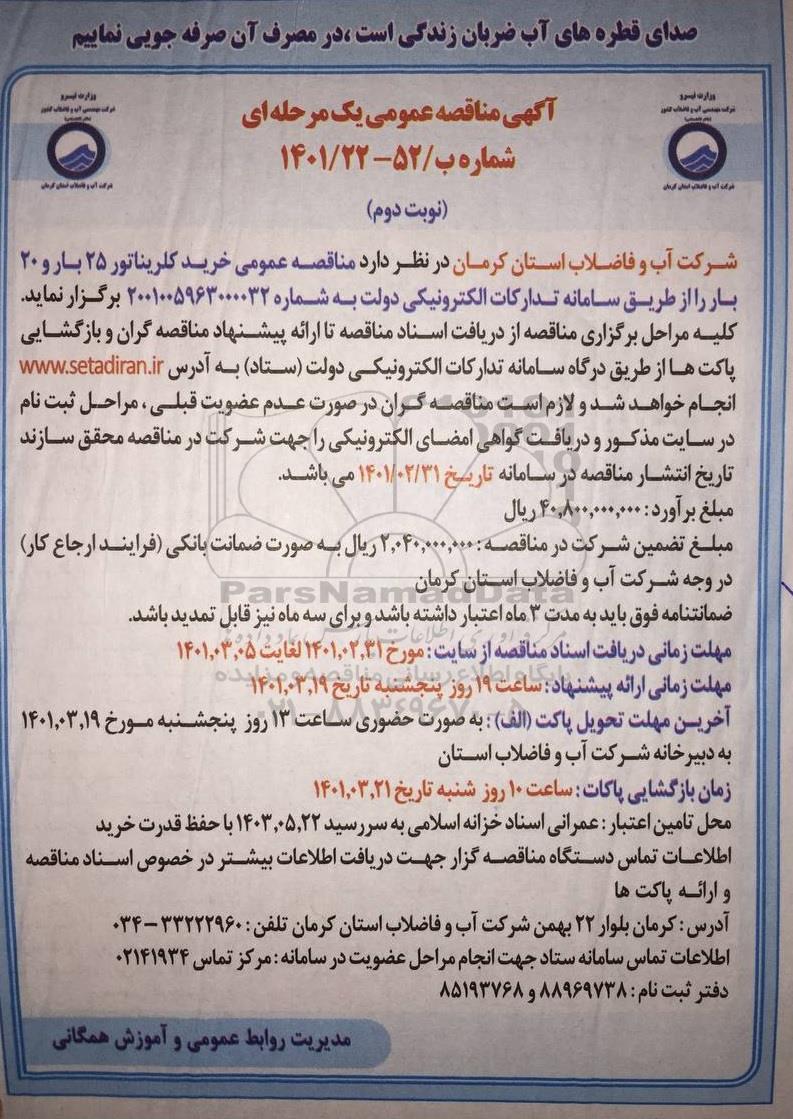 صدای قطره های آب ضربان زندگی است ،در مصرف آن صرفه جویی نماییم
وزارت نیرو
شرکت مهندسی آب و فاضلاب کشور
(مادر تخصصی)
شرکت آب و فاضلاب استان کرمان
وزارت نیرو
شرکت مهندسی آب و فاضلاب کشور
(مادر تخصصی)
شرکت آب و فاضلاب استان کرمان
آگهی مناقصه عمومی یک مرحله ای
شماره ب/۵۲-۱۴۰۱/۲۲
(نوبت دوم)
شرکت آب و فاضلاب استان کرمان در نظر دارد مناقصه عمومی خرید کلریناتور ۲۵ بار و ۲۰
بار را از طریق سامانه تدارکات الکترونیکی دولت به شماره ۲۰۰۱۰۰۵۹۶۳۰۰۰۰۳۲ برگزار نماید.
کلیه مراحل برگزاری مناقصه از دریافت اسناد مناقصه تا ارائه پیشنهاد مناقصه گران و بازگشایی
پاکت ها از طریق درگاه سامانه تدارکات الکترونیکی دولت (ستاد) به آدرس www.setadiran.ir
انجام خواهد شد و لازم است مناقصه گران در صورت عدم عضویت قبلی ، مراحل ثبت نام
در سایت مذکور و دریافت گواهی امضای الکترونیکی را جهت شرکت در مناقصه محقق سازند
تاریخ انتشار مناقصه در سامانه تاریخ ۱۴۰۱/۰۲/۳۱ می باشد.
مبلغ برآورد : ۴۰,۸۰۰,۰۰۰,۰۰۰ ریال
مبلغ تضمین شرکت در مناقصه : ۲,۰۴۰,۰۰۰,۰۰۰ ریال به صورت ضمانت بانکی (فرایند ارجاع کار)
در وجه شرکت آب و فاضلاب استان کرمان
ParsNamadData
ضمانتنامه فوق باید به مدت ۳ ماه اعتبار داشته باشد و برای سه ماه نیز قابل تمدید باشد.
مهلت زمانی دریافت اسناد مناقصه از سایت : مورخ ۱۴۰۱,۰۲,۳۱ لغایت ۱۴۰۱,۰۳,۰۵
پایگاه اطلاع رسانی مناقصه و مزایده
مهلت زمانی ارائه پیشنهاد : ساعت ۱۹ روز پنجشنبه تاریخ ۱۴۰۱,۰۳,۱۹
۰۲۱-۸۸۳۴۹۶۷۰-۵
آخرین مهلت تحویل پاکت (الف) : به صورت حضوری ساعت ۱۳ روز پنجشنبه مورخ ۱۴۰۱,۰۳,۱۹
به دبیرخانه شرکت آب و فاضلاب استان
زمان بازگشایی پاکات : ساعت ۱۰ روز شنبه تاریخ ۱۴۰۱,۰۳,۲۱
محل تامین اعتبار : عمرانی اسناد خزانه اسلامی به سررسید ۱۴۰۳,۰۵,۲۲ با حفظ قدرت خرید
اطلاعات تماس دستگاه مناقصه گزار جهت دریافت اطلاعات بیشتر در خصوص اسناد مناقصه
و ارائه پاکت ها
آدرس : کرمان بلوار ۲۲ بهمن شرکت آب و فاضلاب استان کرمان تلفن : ۳۳۲۲۲۹۶۰ - ۰۳۴
اطلاعات تماس سامانه ستاد جهت انجام مراحل عضویت در سامانه : مرکز تماس ۰۲۱۴۱۹۳۴
دفتر ثبت نام : ۸۸۹۶۹۷۳۸ و ۸۵۱۹۳۷۶۸
مدیریت روابط عمومی و آموزش همگانی